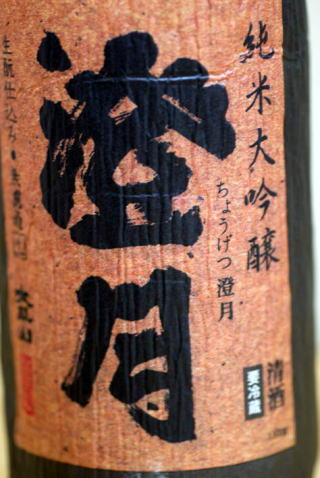 純米大吟醸
ちょうげつ 澄月
清酒
要冷蔵
澄月
生酛仕込み・無濾過